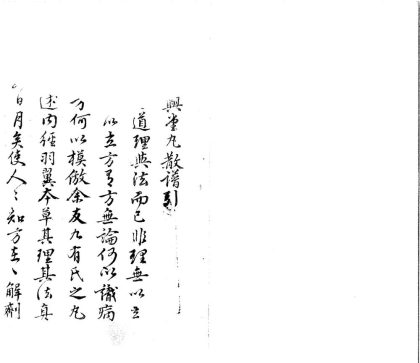 興堂丸散譜引
道理與法而已非理無以立
以立方有方無論何以識病
何以模倣余友九有氏之丸
述内經羽翼本草其理其法真
日月矣使人々知方在々解劑